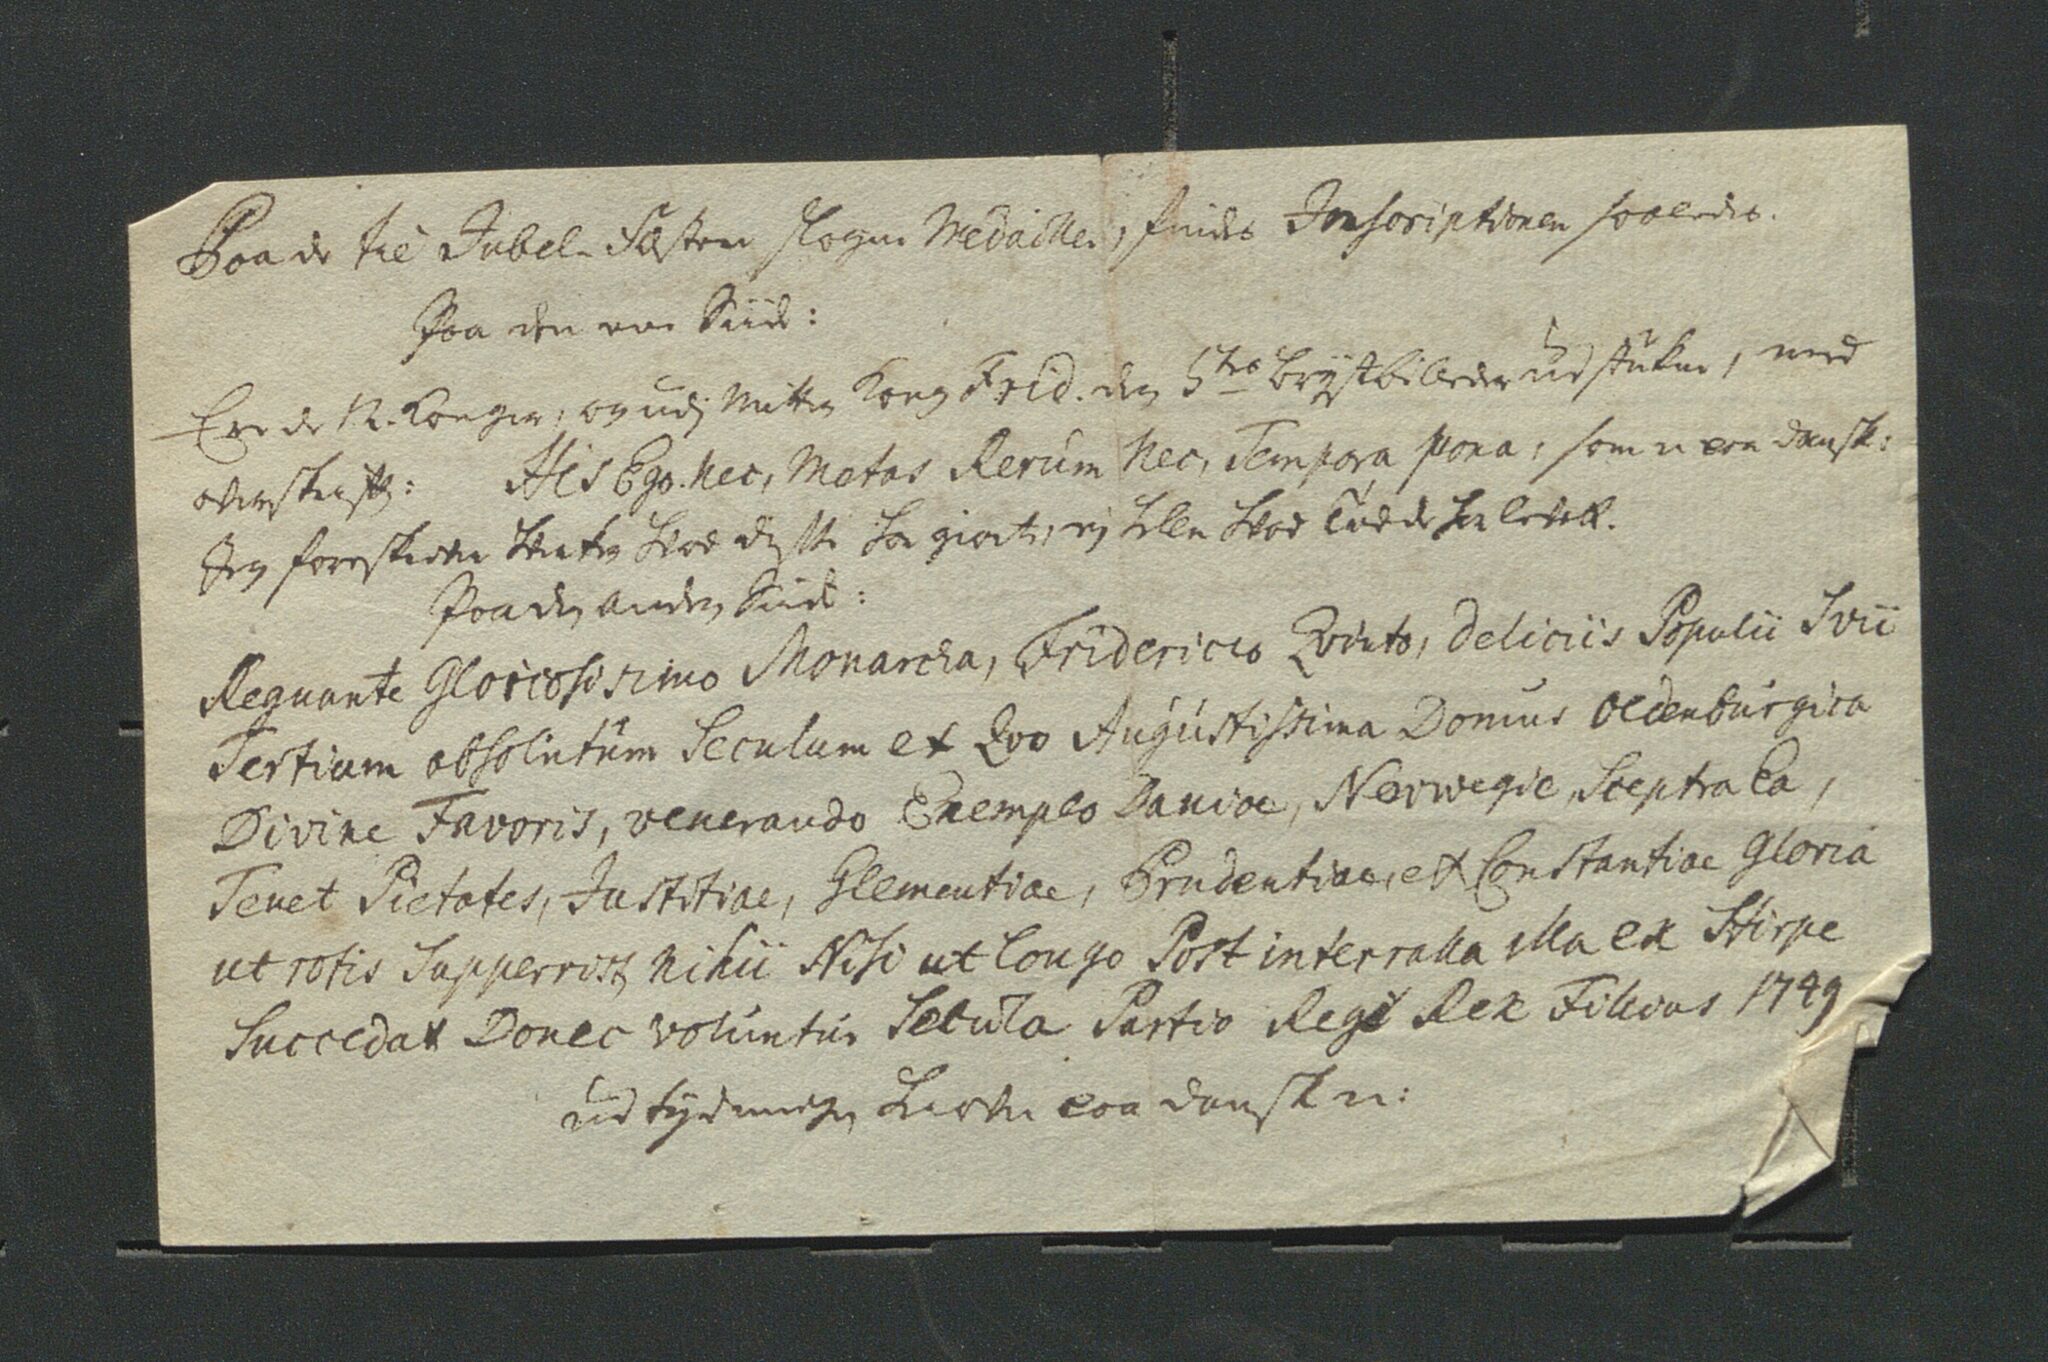 Paa de til Jubel-Fæsten slagne Medailler, findes Inscriptionen saaledes.
Paa den ene Siide:
Ere de 12. Konger, og udj Mitten Kong Frid. den 5tes Brystbilleder udstukne, med
overskrifft: His Ego. Nec, Metas Rerum Nec, Tempora pona, som er paa Dansk:
Jeg foreskriver hverken hvad disse har giort, ej heller hvad Tiid de har levet.
Paa den anden Siide:
Regnante Gloriosissimo Monarcha, Friderico Qvinto, Deliciis Populii Svii
Tertium absolutum Seculum ex Qvo Augustissima Domus Oldenburgica
Divine Favoris, venerando Exemplo Daniae, Norwegie, Sceptra Ea,
Tenet Pietates, Justitiae, Glementiae, Prudentiae, et Constantiae Gloria
ut votis Supperrist nihii Nisi ut Longo Post intervalla illa ex Stirpe
Succedat Donec voluntur Secula Partio Regi Rex Filivus 1749
udtydningen herved paa Dansk er: